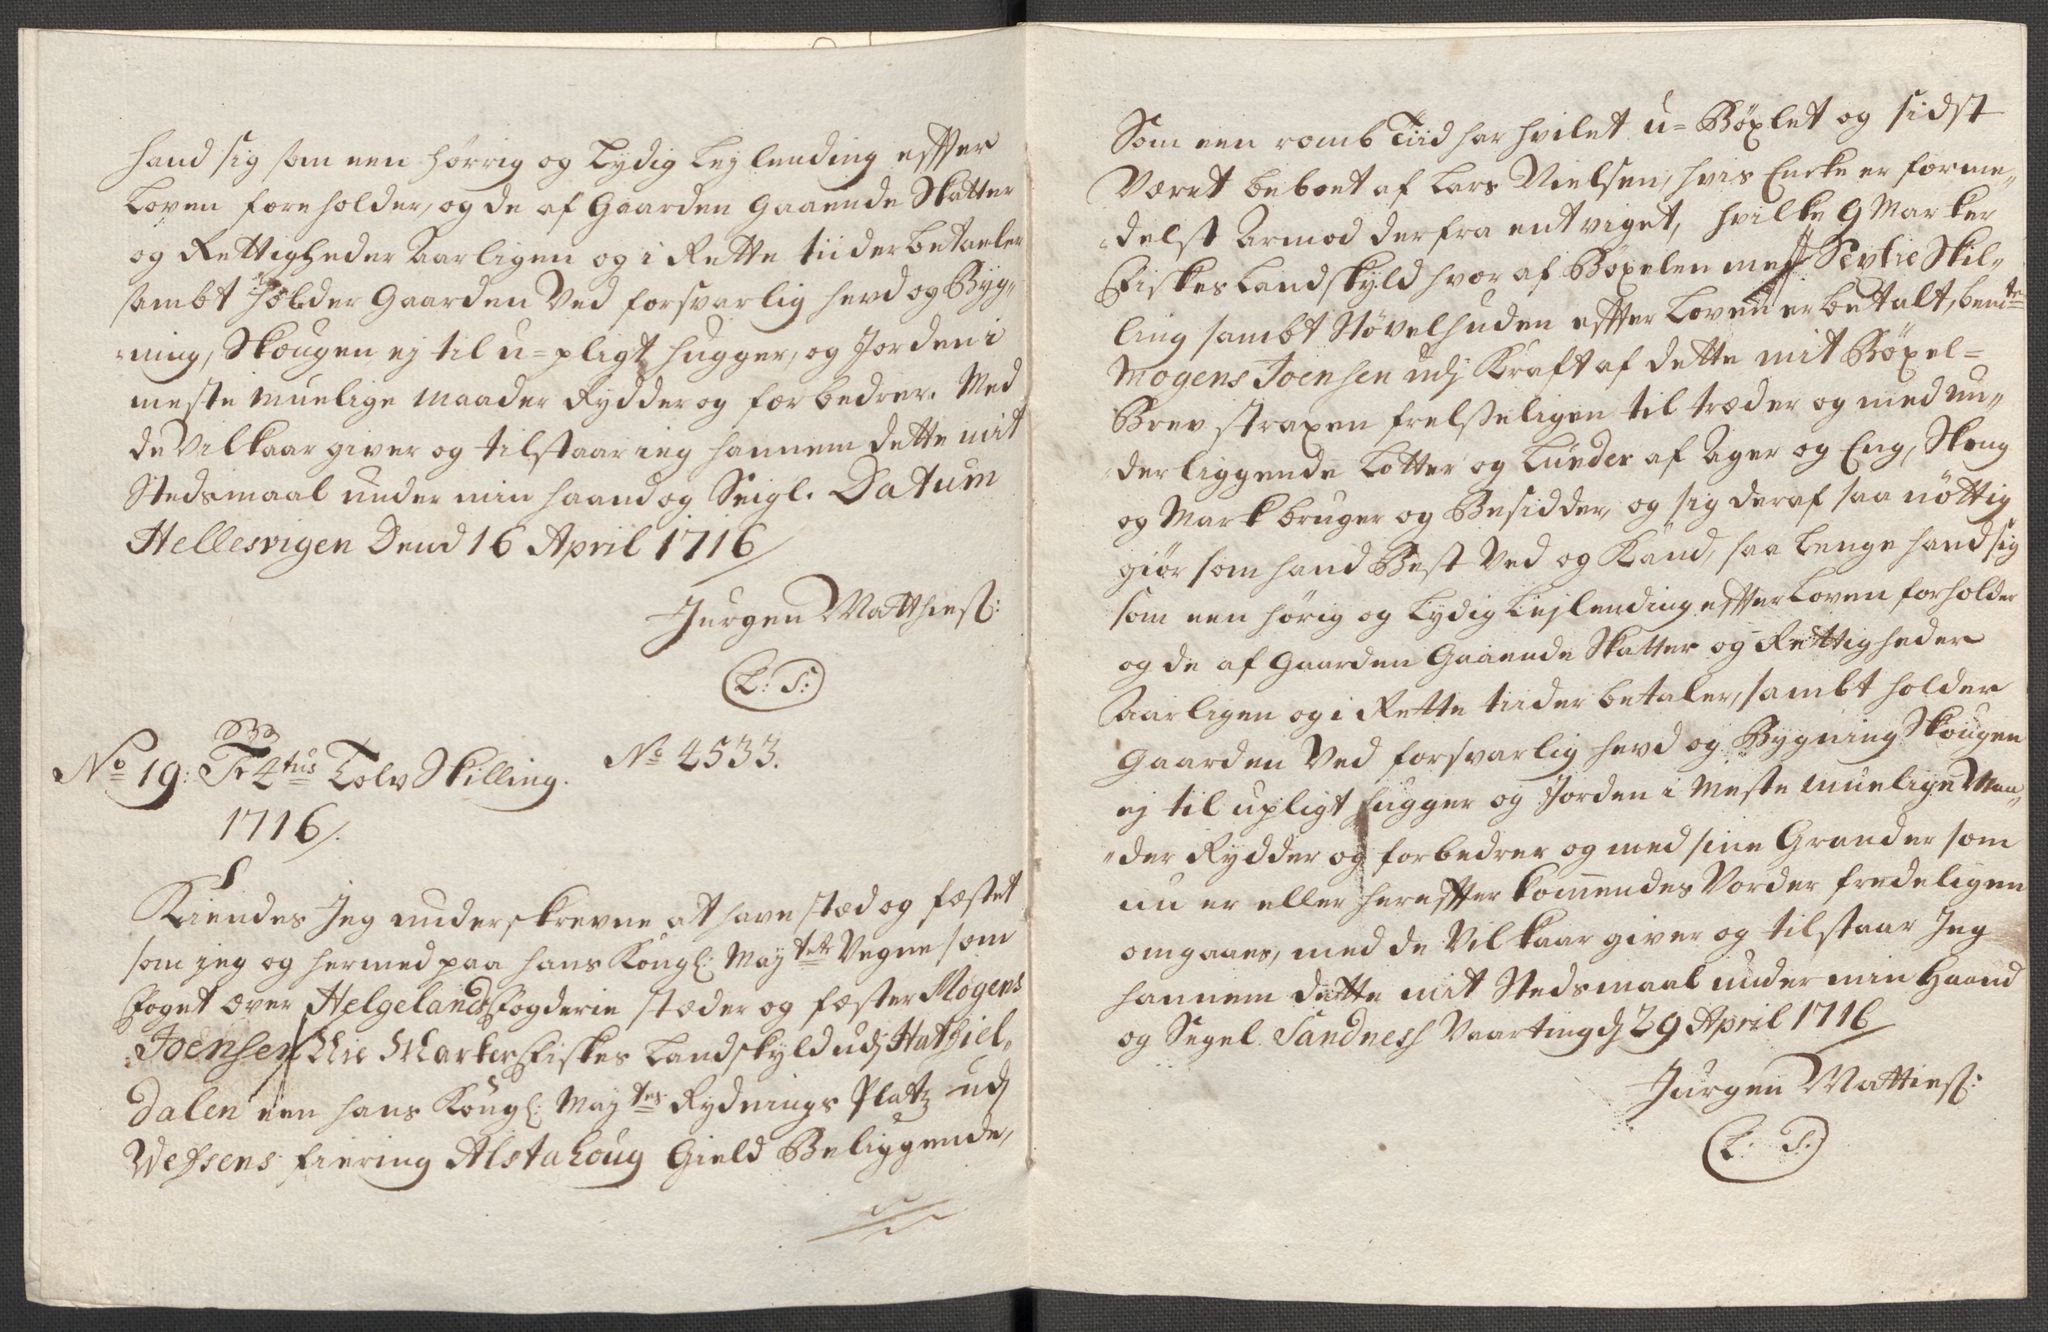 hand sig som een hørrig og Lydig Lejlending effter
Loven foreholder, og de af Gaarden Gaaende Skatter
og Rettigheder Aarligen og i Rette tiider betaeler
sambt holder Gaarden Ved forsvarlig hevd og Byg-
ning, Skougen ej til u-pligt hugger, og Jorden i
meste muelige maader Rydder og forbedrer. Med
de Vilkaar giver og tilstaar ieg hannem dette mit
Stedsmaal under min haand og Seigl. Datum
Hellesvigen Dend 16 April 1716
Jurgen Matthiess:
L: S:
No 19: Fr 4tus Tolv Skilling. No 4533.
1716.
Kiendes Jeg underskrevne at have stæd og fæstet
som jeg og hermed paa hans Kongl: Maytetz Vegne som
foget over Helgelands fogderie stæder og fæster Mogens
Joensen Nie Marker Fiskes Landskyld udj Hatfiel-
dalen een hans Kongl: Maytes Rydnings Platz udj
Wefsens fiering Alstahoug Gield Beliggende,
Som een romb Tiid har hvilet u-Böxlet og sidst
Været beboet af Lars Nielsen, hvis Encke er forme-
delst Armod derfra entviget, hvilke 9 Marker
Fiskes Landskyld hvor af Böxelen med Sextie Skil-
ling sambt Støvelhuden effter Loven er betalt, bemte
Mogens Joensen udj Kraft af dette mit Böxel-
Brev straxen frelseligen til træder og med un-
derliggende Lotter og Lunder af Ager og Eng, Skoug
og Mark bruger og Besidder, og sig deraf saa nöttig
giör som hand Best Ved og Kand, saa Lenge hand sig
som een hörig og Lydig Lejlending effter Loven forholder
og de af Gaarden Gaaende Skatter og Rettigheder
Aarligen og i Rette tiider betaler, sambt holder
Gaarden Ved forsvarlig hevd og Bygning Skougen
ej til upligt hugger og Jorden i Meste muelige Maa-
der Rydder og forbedrer og med sine Grander som
nu er eller hereffter kommendes Vorder fredeligen
omgaaes, med de Vilkaar giver og tilstaar Jeg
hannem dette mit Stedsmaal under min Haand
og Segel Sandness Vaarting dj 29 April 1716
Jurgen Mattiess:
L: S: